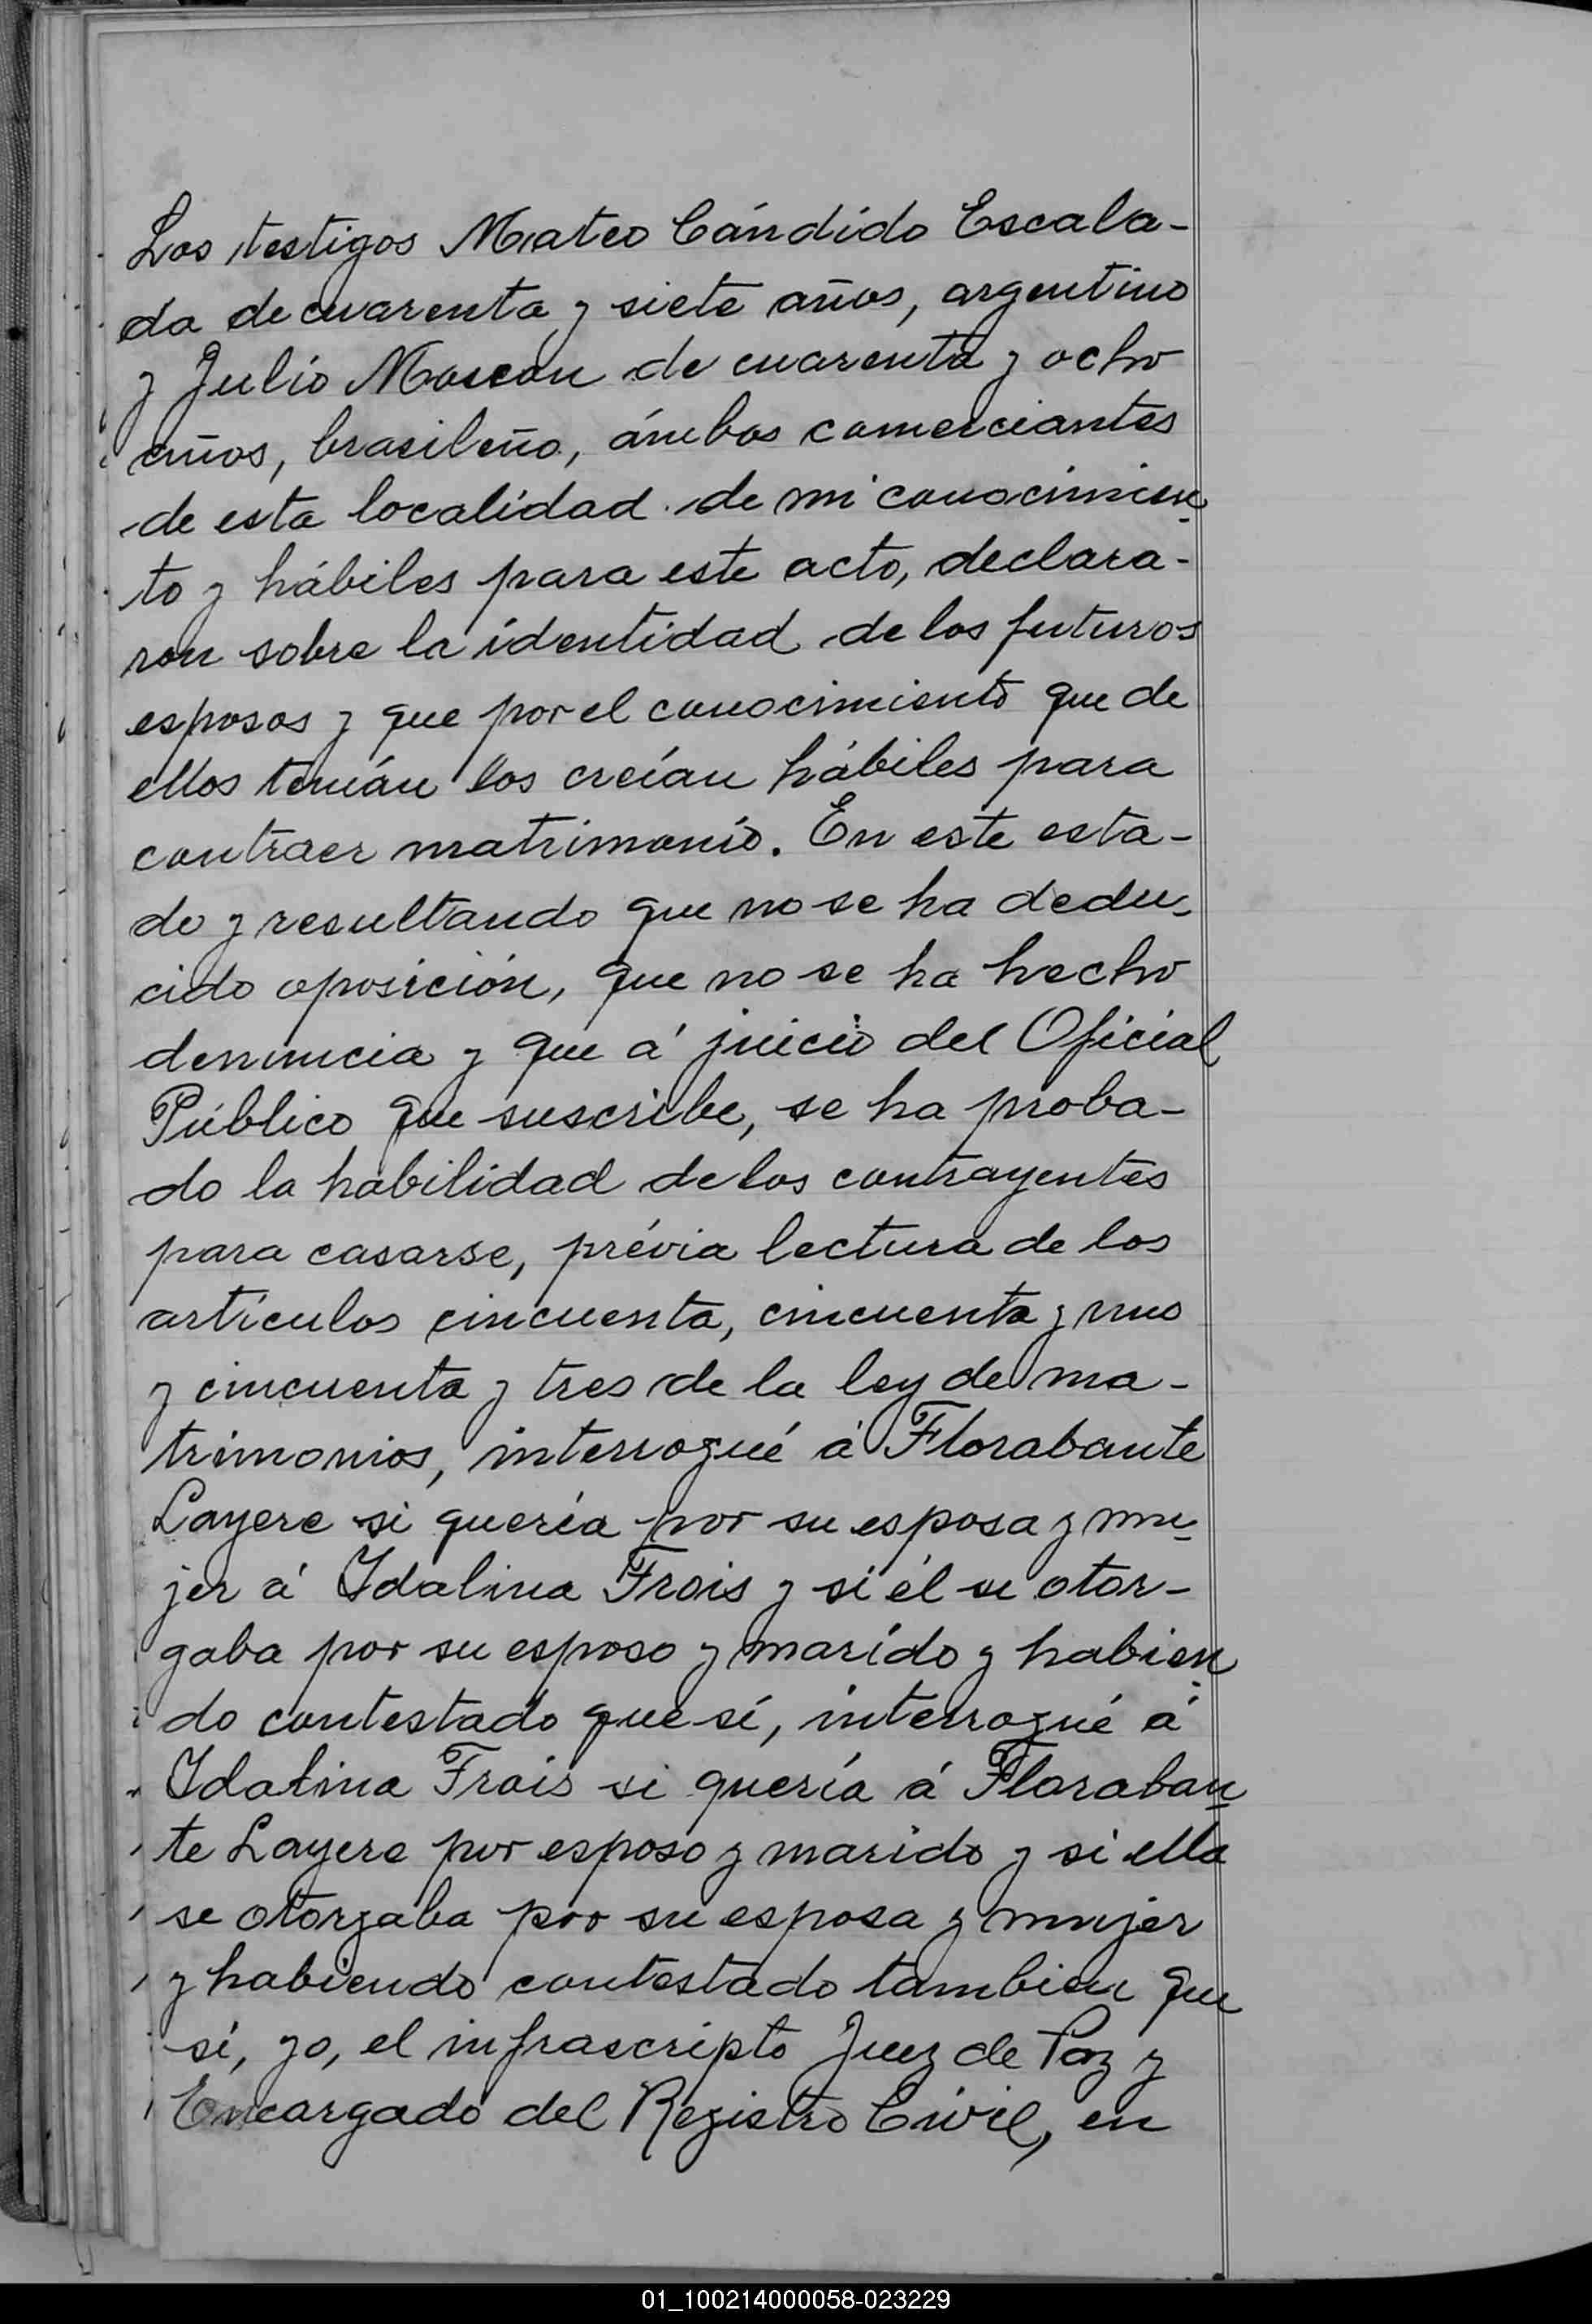 Los testigos Mateo Cándido Escala-
da de cuarenta y siete años, argentino
y Julio Moscon de cuarenta y ocho
años, brasileño, ámbos comerciantes
de esta localidad de mi conocimien
to y hábiles para este acto, declara-
ron sobre la identidad de los futuros
esposos y que por el conocimiento que de
ellos tenían los creían hábiles para
contraer matrimonio. En este esta-
do y resultando que no se ha dedu-
cido oposición, que no se ha hecho
denuncia y que á juicio del Oficial
Público que suscribe, se ha proba-
do la habilidad de los contrayentes
para casarse, prévia lectura de los
artículos cincuenta, cincuenta y uno
y cincuenta y tres de la ley de ma-
trimonios, interrogué á Florabante
Layere si quería por su esposa y mu-
jer á Idalina Frois y si él se otor-
gaba por su esposo y marido y habien
do contestado que sí, interrogué á
Idalina Frois si quería á Floraban
te Layere por esposo y marido y si ella
se otorgaba por su esposa y mujer
y habiendo contestado tambien que
sí, yo, el infrascripto Juez de Paz y
Encargado del Registro Civil, en
01_100214000058-023229